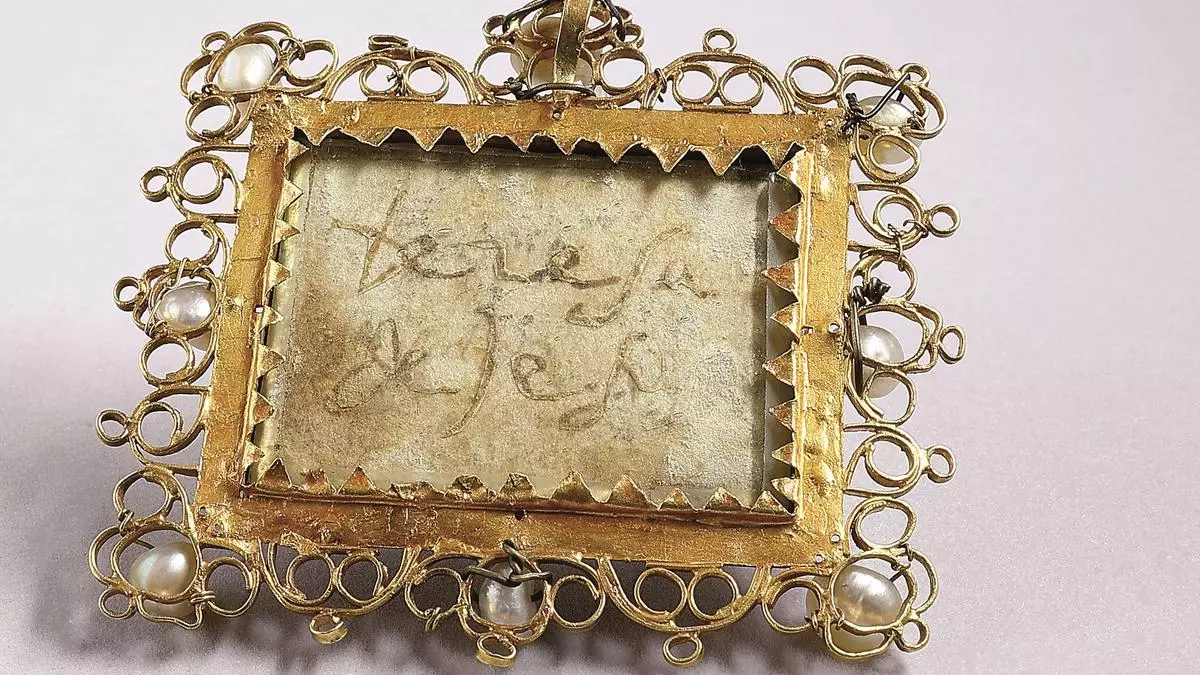 teresa
de jesu